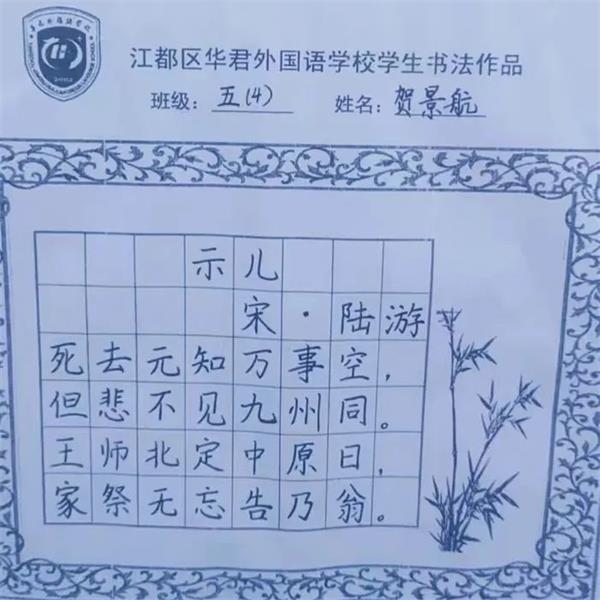 江都区华君外国语学校学生书法作品
班级：五(4) 姓名：贺景航
示儿
宋·陆游
死去元知万事空，
但悲不见九州同。
王师北定中原日，
家祭无忘告乃翁。